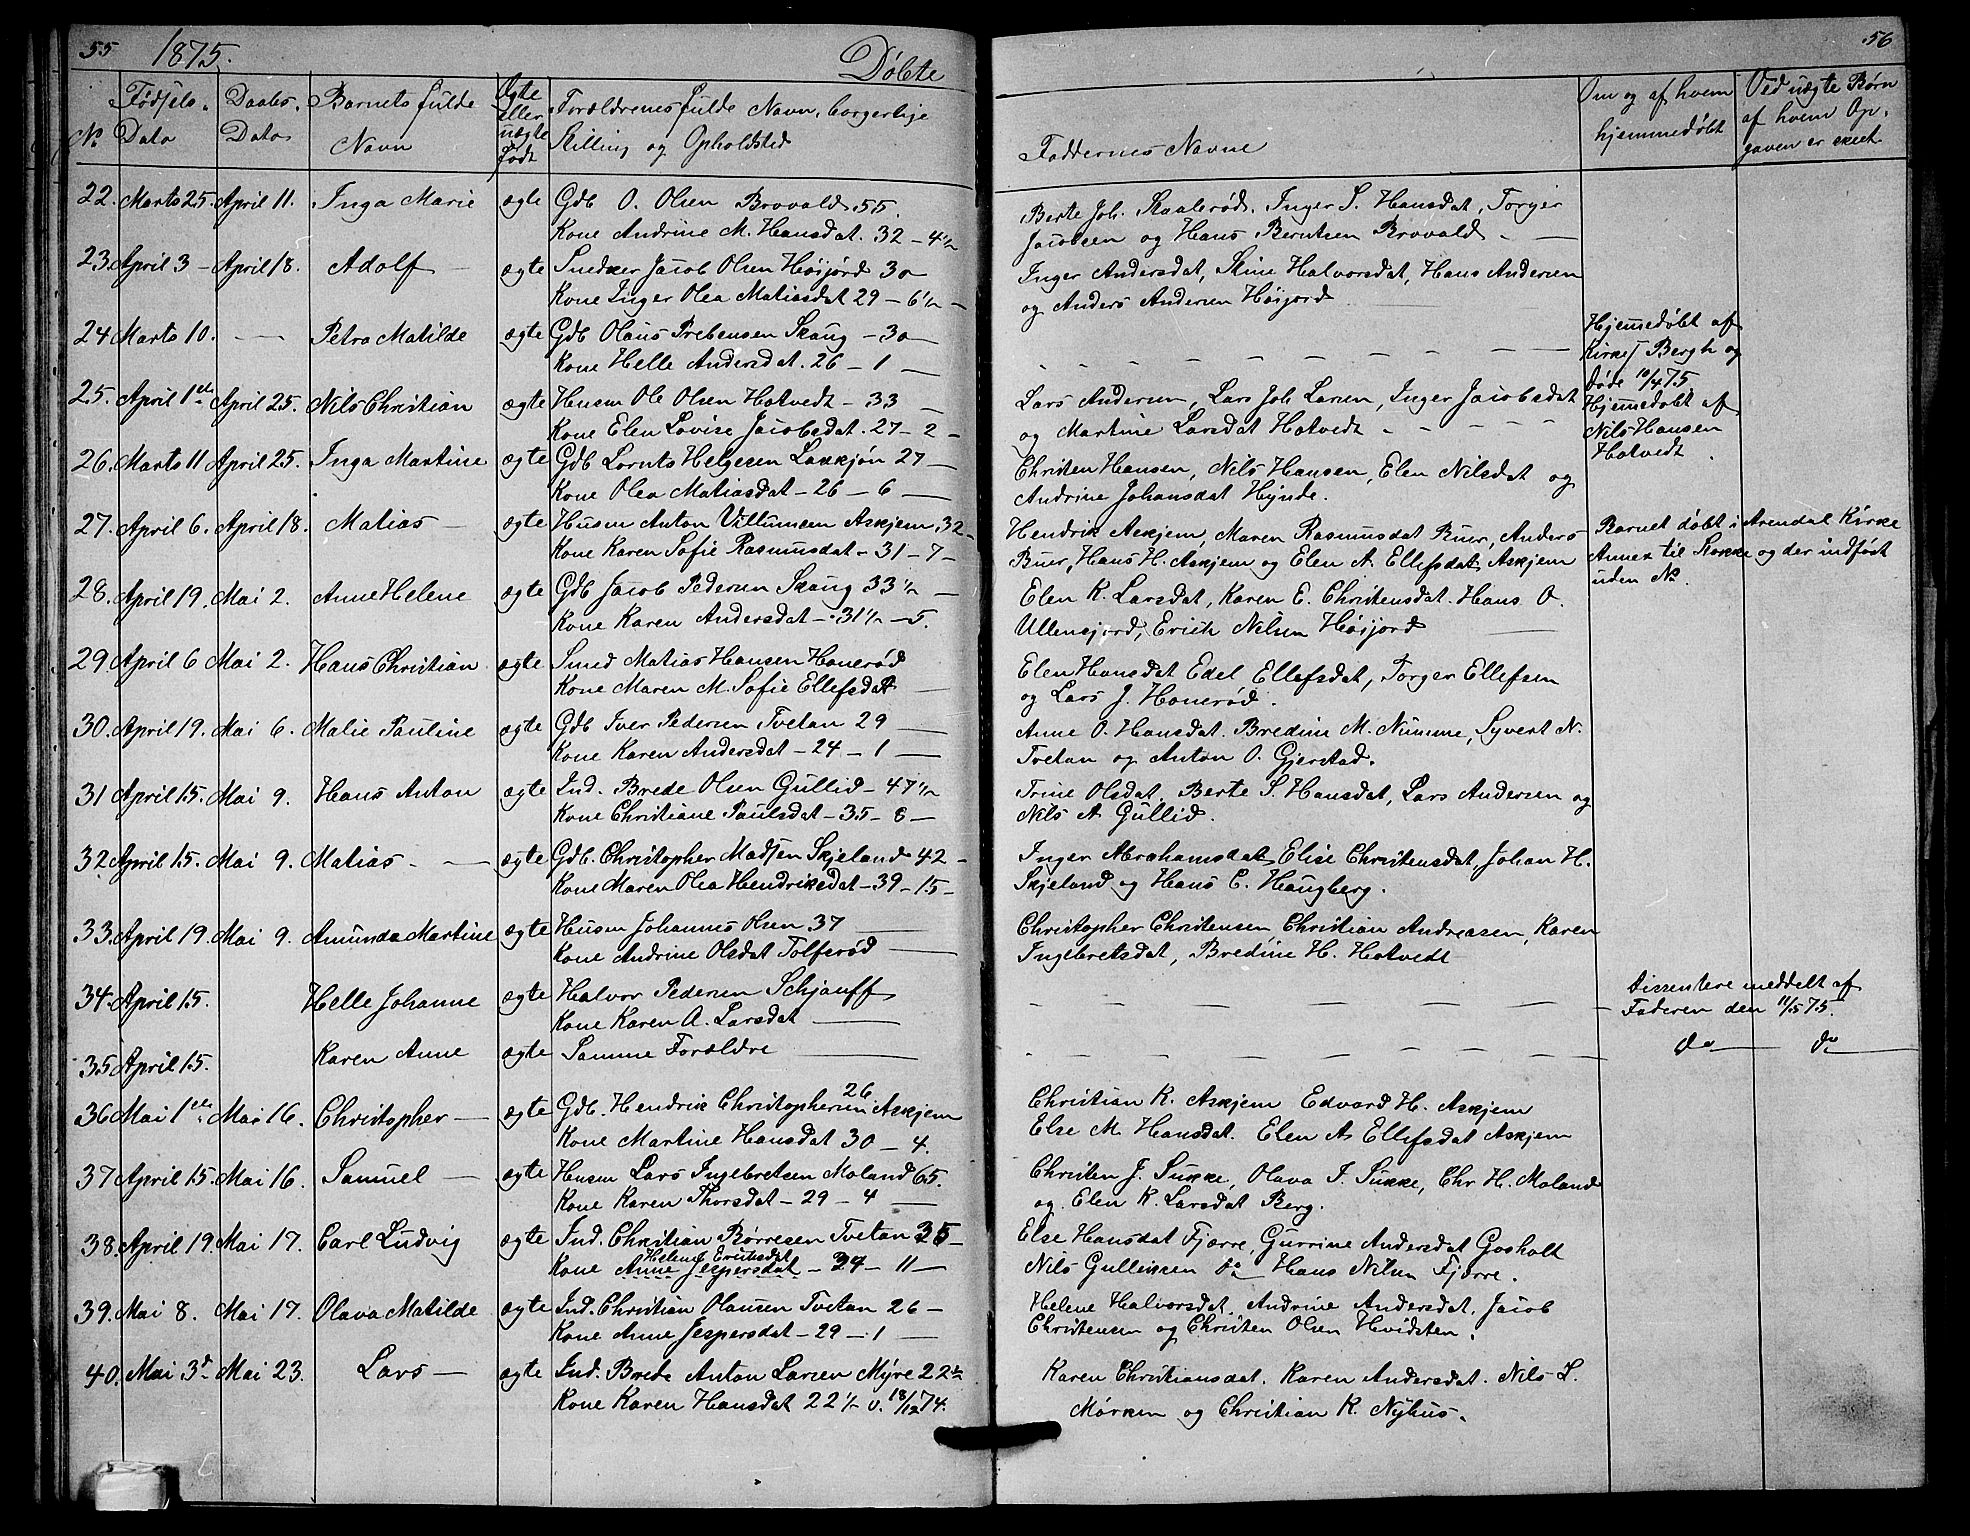 55 1875. Døbte
No. Fødsels Dato Daabs Dato Barnets fulde Navn Ægte eller uægte født Forældrenes fulde Navn, borgerlige Stilling og Opholdsted
22. Marts 25. April 11. Inga Marie ægte Gdb O. Olsen Brovald 55.
Kone Andrine M. Hansdat. 32 – 4 1/2
23. April 3 – April 18. Adolf – ægte Snedker Jacob Olsen Høijord 30
Kone Inger Olea Matiasdat 29 – 6 1/2 –
24 Marts 10. — Petra Matilde ægte Gdb Olaus Prebensen Skaug – 30
Kone Helle Andersdat. 26 – 1 —
25. April 1ste April 25. Nils Christian ægte Husm Ole Olsen Hotvedt – 33 –
Kone Elen Lovise Jacobsdat. 27 – 2 –
26. Marts 11 April 25. Inga Martine ægte Gdb Lornts Helgesen Laskjøn 27 –
Kone Olea Matiasdat – 26 – 6 —
27. April 6. April 18. Matias – ægte Husm Anton Villumsen Askjem 32 –
Kone Karen Sofie Rasmusdat – 31 – 7 –
28. April 19. Mai 2. Anne Helene ægte Gdb Jacob Pedersen Skaug 33 1/2 –
Kone Karen Andersdat – 31 1/2 – 5.
29. April 6 Mai 2. Hans Christian ægte Smed Matias Hansen Hanerød
Kone Maren M. Sofie Ellefsdat —
30. April 19. Mai 6. Malie Pauline ægte Gdb Iver Pedersen Tvetan 29 —
Kone Karen Andersdat – 24 – 1 —
31 April 15. Mai 9. Hans Anton ægte Ind. Brede Olsen Gullid – 47 1/2
Kone Christiane Paulsdat – 35 – 6 –
32 April 15. Mai 9. Matias – — ægte Gdb. Christopher Madsen Skjeland 42 –
Kone Maren Olea Hendriksdat – 39 – 15 –
33. April 19. Mai 9. Amunda Martine ægte Husm Johannes Olsen 37 —
Kone Andrine Olsdat Tolferød —
34. April 15. Helle Johanne ægte Halvor Pedersen Schjauff
Kone Karen A. Larsdat —
35 April 15. Karen Anne ægte Samme Forældre —
36 Mai 1ste Mai 16. Christopher – ægte Gdb. Hendrik Christophersen 26 Askjem
Kone Martine Hansdat 30 – 4.
37 April 15 Mai 16. Samuel – ægte Husm Lars Ingebretsen Moland 65.
Kone Karen Thorsdat – 29 – 4 —
38. April 19. Mai 17. Carl Ludvig ægte Ind. Christian Børresen Tvetan 35 –
Helene J. Ericksdat
Kone Anne Jespersdat – 34 – 11 –
39. Mai 8. Mai 17. Olava Matilde ægte Ind. Christian Olausen Tvetan 26 –
Kone Anne Jespersdat – 29 – 1 —
40. Mai 3d Mai 23. Lars – ægte Ind. Brede Anton Larsen Myre 22 1/2
Kone Karen Hansdat 22 1/2 v. 18/12 74.
56
Faddernes Navne Om og af hvem hjemmedøbt Ved uægte Børn af hvem Opgaven er skeet
Berte Joh. Skaalerød, Inger S. Hansdat, Torger
Jacobsen og Hans Berntsen Brovald –
Inger Andersdat, Stine Halvorsdat, Hans Andersen
og Anders Andersen Høijord
Hjemmedøbt af
Kirkes. Bergh og
døde 10/4 75.
Lars Andersen, Lars Joh. Larsen, Inger Jacobsdat
og Martine Larsdat Hotvedt –
Hjemmedøbt af
Nils Hansen
Hotvedt.
Christen Hansen, Nils Hansen, Elen Nilsdat og
Andrine Johansdat Hynde.
Hendrik Askjem, Maren Rasmusdat Buer, Anders
Buer, Hans H. Askjem og Elen A Ellefsdat Askjem
Barnet døbt i Arendal Kirke
Annex til Stokke og der indført
uden No.
Elen K. Larsdat, Karen E. Christensdat. Hans O.
Ullensjord, Erich Nilsen Høijord —
Elen Hansdat Edel Ellefsdat, Torger Ellefsen
og Lars J. Hanerød.
Anne O. Hansdat. Bredine M. Numme, Syvert N.
Tvetan og Anton O. Gjerstad.
Trine Olsdat, Berte S. Hansdat, Lars Andersen og
Nils A Gullid.
Inger Abrahamsdat, Elise Christensdat, Johan H.
Skjeland og Hans C. Haugberg.
Christopher Christensen Christian Andreasen, Karen
Ingebretsdat, Bredine H. Hotvedt
Dissentere meddelt af
Faderen den 11/5 75.
do — do
Christian K. Askjem Edvard H. Askjem
Else M. Hansdat. Elen A Ellefsdat Askjem
Christen J. Sukke, Olava I. Sukke, Chr H. Moland
og Elen K. Larsdat Berg.
Else Hansdat Fjære, Gurrine Andersdat Gosholt
Nils Gulliksen do Hans Nilsen Fjære.
Helene Halvorsdat, Andrine Andersdat, Jacob
Christensen og Christen Olsen Hvidsten.
Karen Christiansdat. Karen Andersdat. Nils L.
Mørken og Christian K. Nyhus.